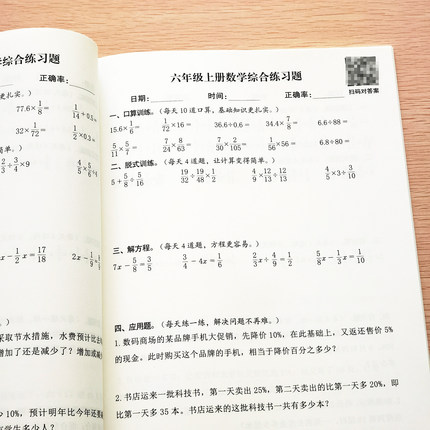 学综合练习题
正确率：
更扎实。）
77.6×1/8=
1/14+0.5=
32×1/72=
1/2×0.3=
简单。）
2/3÷3/4×9
4/5×5/6÷
x-1/2x=17/18
2x-1/9=
采取节水措施，水费预计比去
增加了还是减少了？增加或减
少10%，预计明年比今年还
六年级上册数学综合练习题
日期：
时间：
正确率：
扫码对答案
一、口算训练。（每天 10 道口算，基础知识更扎实。）
15.6×1/6=
1/72×16=
36.6÷0.6=
34.4×7/8=
6.6÷88=
5/11×5/7=
7/24×8/63=
7/30×2/105=
1/56×56=
6.8÷80=
二、脱式训练。（每天 4 道题，让计算变得简单。）
5+5/8÷5/16
19/32÷19/48×1/2
4/9×12/13÷12/13
4/5×3÷3/10
三、解方程。（每天 4 道题，方程更容易。）
7x-5/8=3/5
3/4-4x=1/6
2/3x÷4/9=1/2
5/8x-1/3x=1/10
四、应用题。（每天练一练，解决问题不再难。）
1.数码商场的某品牌手机大促销，先降价10%，在此基础上，又返还售价 5%
的现金。此时购买这个品牌的手机，相当于降价百分之多少？
2.书店运来一批科技书，第一天卖出 25%，第二天卖出的比第一天多 20%，即
比第一天多 35 本。书店运来的这批科技书一共有多少本？